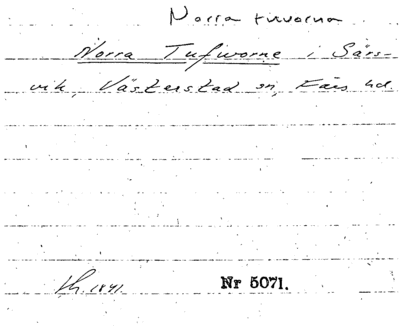 Norra tuvorna
Norra Tufworne i Särs-
vik, Västerstad sn, Färs hd.
Lh. 1841. Nr 5071.